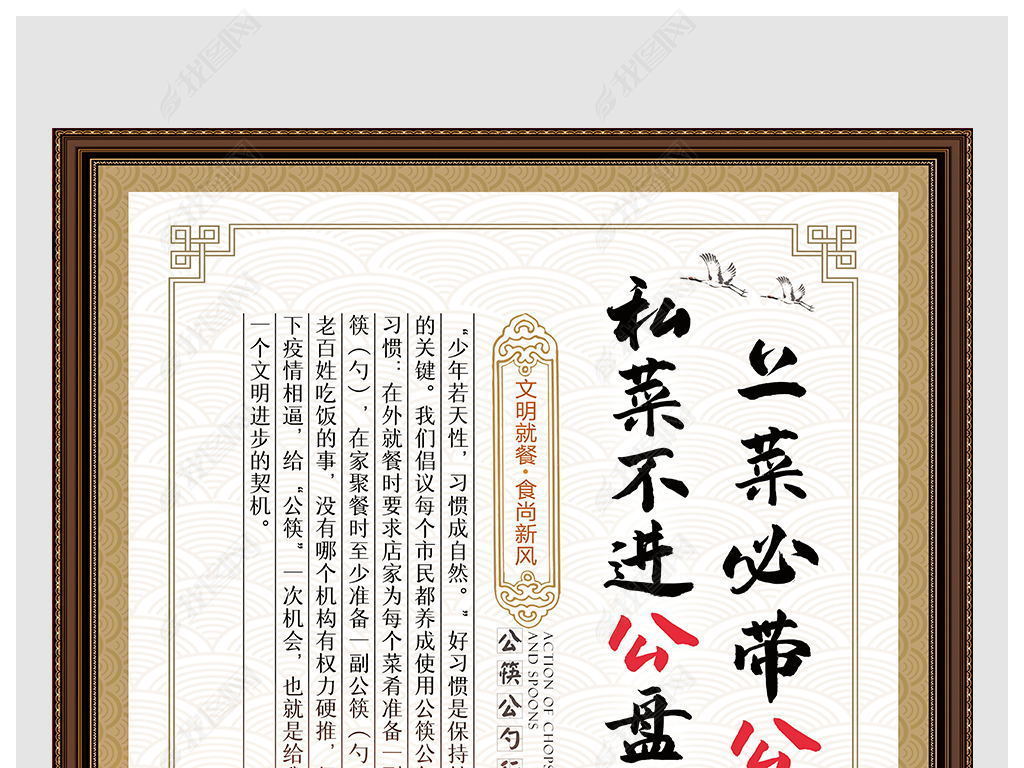 上菜必带公
私菜不进公盘
文明就餐·食尚新风
公筷公勺
ACTION OF CHOPS
AND SPOONS
“少年若天性，习惯成自然。”好习惯是保持
的关键。我们倡议每个市民都养成使用公筷公
习惯：在外就餐时要求店家为每个菜肴准备一
筷（勺），在家聚餐时至少准备一副公筷（勺
老百姓吃饭的事，没有哪个机构有权力硬推，
下疫情相逼，给“公筷”一次机会，也就是给
一个文明进步的契机。